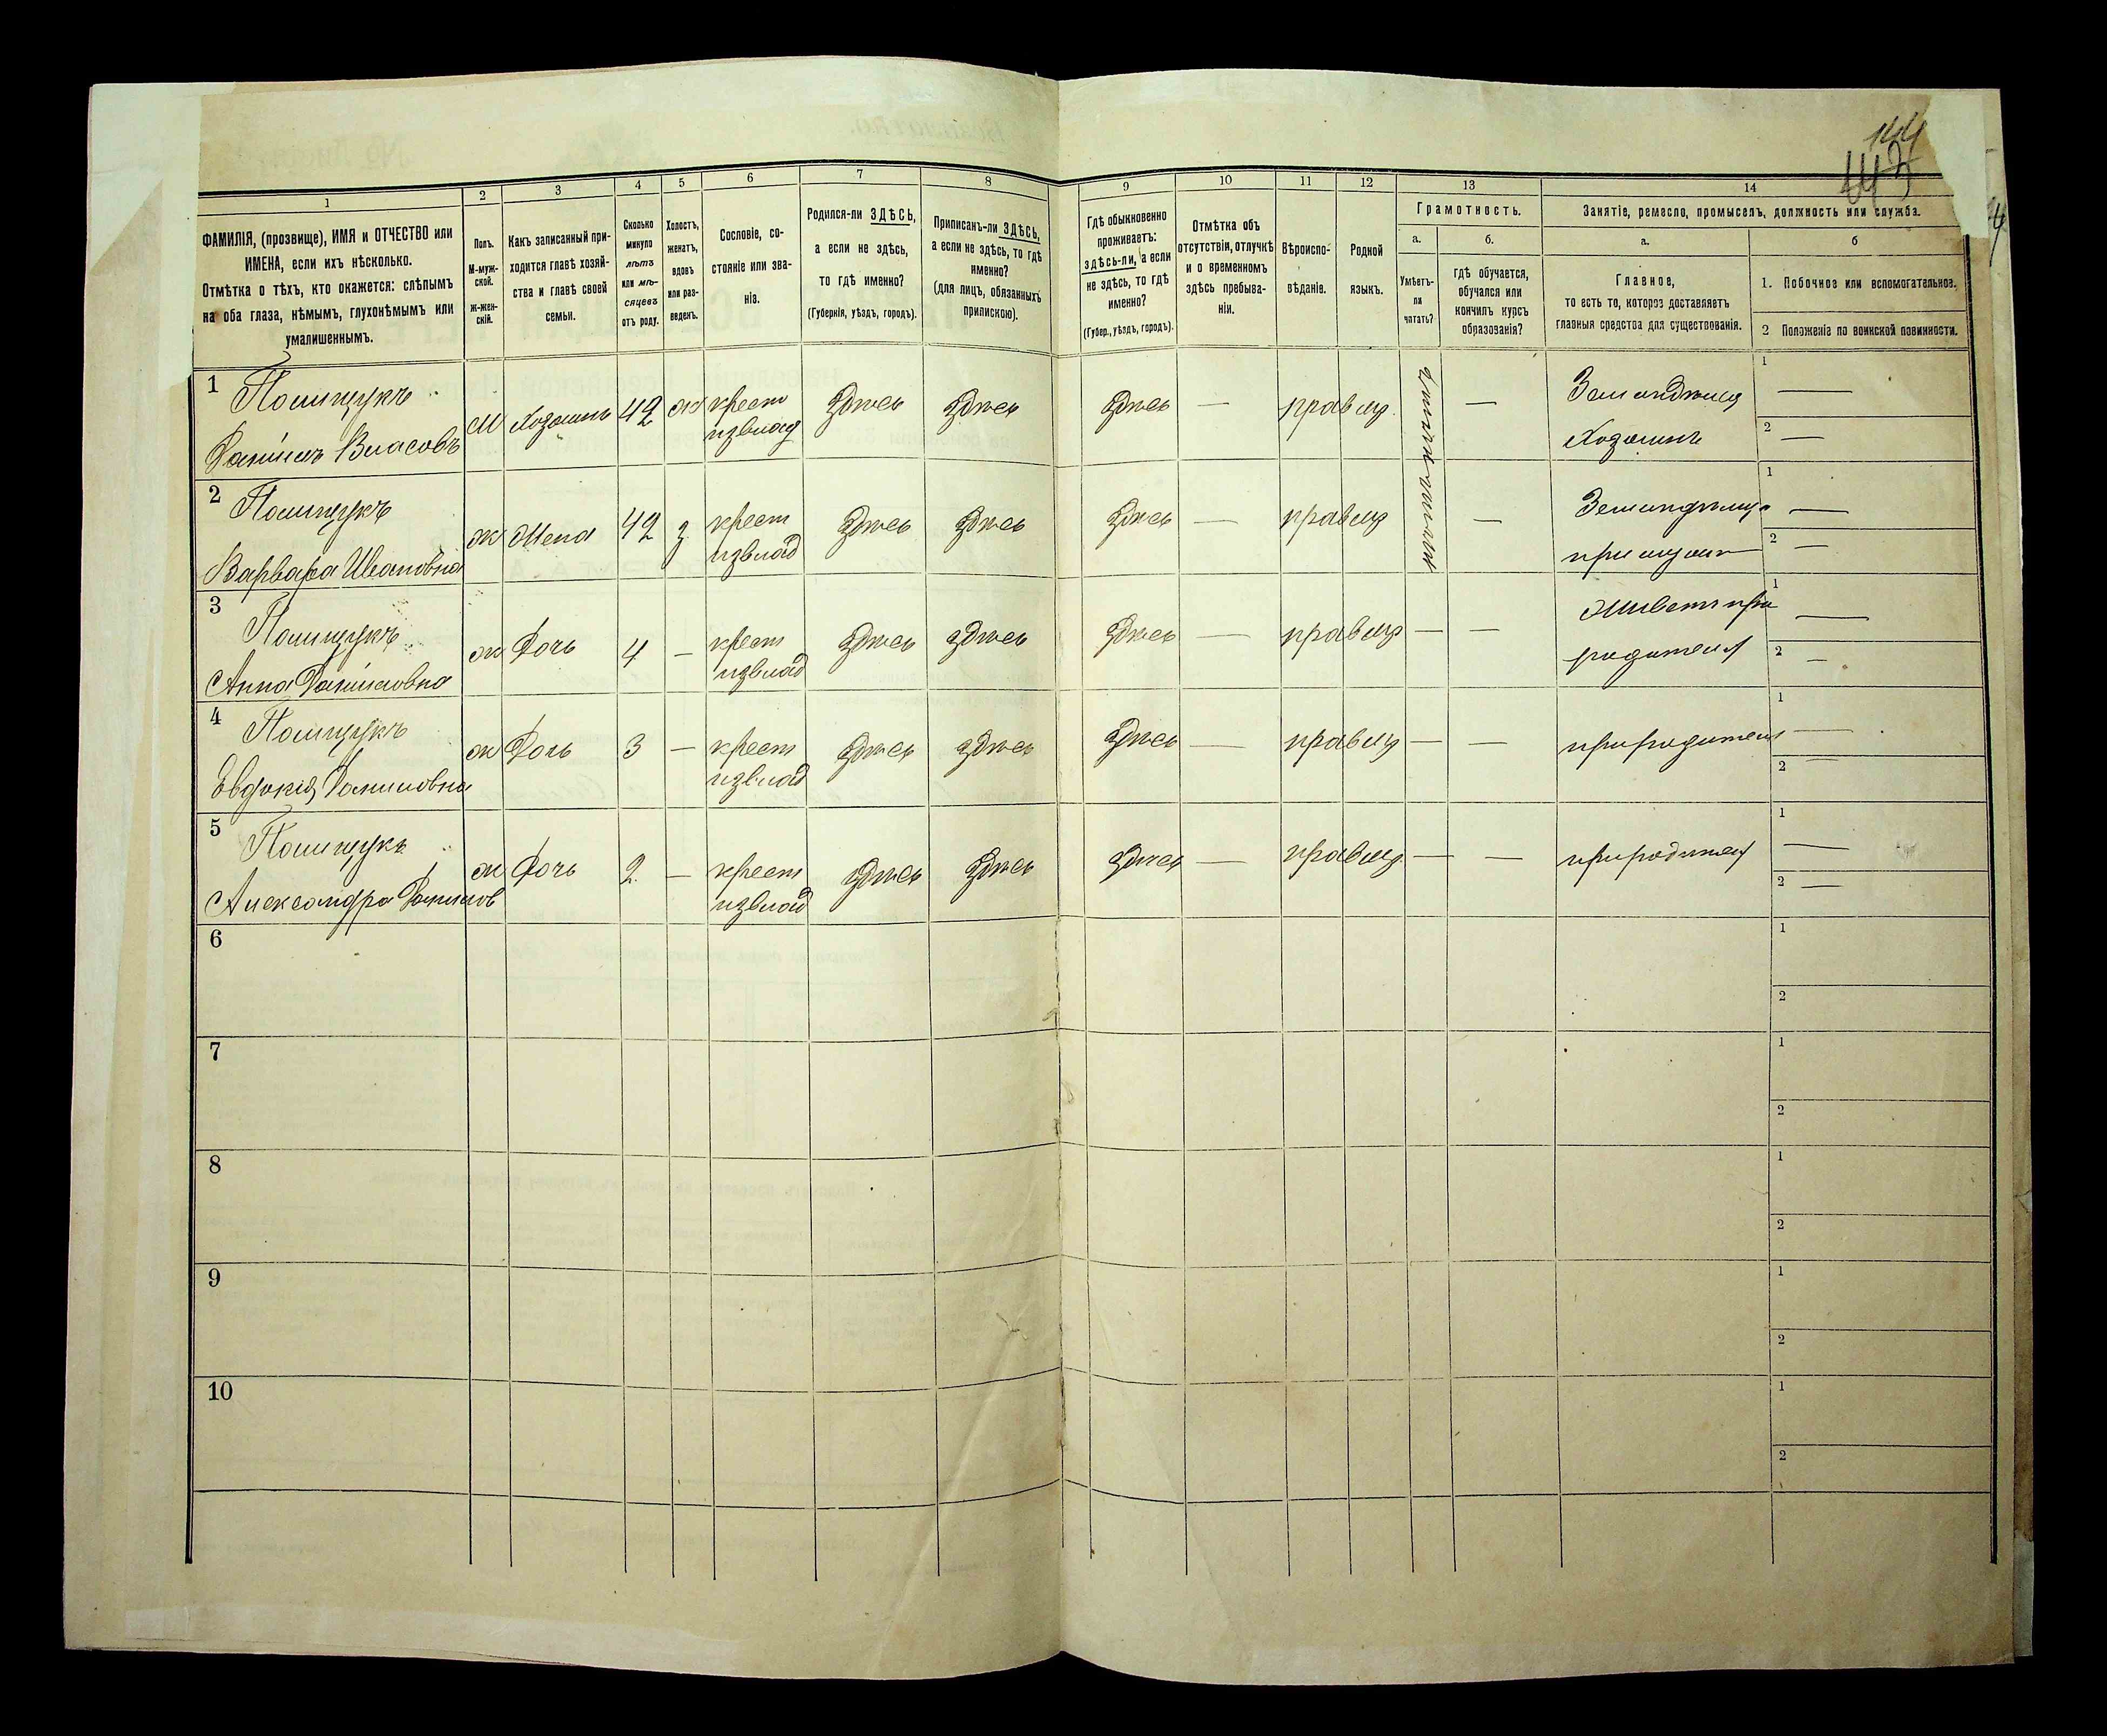 144
1
2
3
4
5
6
7
8
9
10
11
12
13
14
ФАМИЛІЯ, (прозвище), ИМЯ и ОТЧЕСТВО или
ИМЕНА, если ихъ нѣсколько.
Отмѣтка о тѣхъ, кто окажется: слѣпымъ
на оба глаза, нѣмымъ, глухонѣмымъ или
умалишеннымъ.
Полъ.
М-муж-
ской.
Ж-жен-
скій.
Какъ записанный при-
ходится главѣ хозяй-
ства и главѣ своей
семьи.
Сколько
минуло
лѣтъ
или мѣ-
сяцевъ
отъ роду.
Холостъ,
женатъ,
вдовъ
или раз-
веденъ.
Сословіе, со-
стояніе или зва-
ніе.
Родился-ли ЗДѢСЬ,
а если не здѣсь,
то гдѣ именно?
(Губернія, уѣздъ, городъ).
Приписанъ-ли ЗДѢСЬ,
а если не здѣсь, то гдѣ
именно?
(для лицъ, обязанныхъ
припискою).
Гдѣ обыкновенно
проживаетъ:
здѣсь-ли, а если
не здѣсь, то гдѣ
именно?
(Губер., уѣздъ, городъ).
Отмѣтка объ
отсутствіи, отлучкѣ
и о временномъ
здѣсь пребыва-
ніи.
Вѣроиспо-
вѣданіе.
Родной
языкъ.
Грамотность.
а.
Умѣетъ-
ли
читать?
б.
гдѣ обучается,
обучался или
кончилъ курсъ
образованія?
Занятіе, ремесло, промыселъ, должность или служба.
а.
Главное,
то есть то, которое доставляетъ
главныя средства для существованія.
б
1. Побочное или вспомогательное.
2 Положеніе по воинской повинности.
1 Полищукъ
Даніилъ Власовъ
М Хозяинъ 42 ж крест
извлад
Здѣсь Здѣсь Здѣсь — правид —
Земледѣлец
Хозяинъ
1 —
2 —
2 Полищукъ
Варвара Ивановна
ж Жена 42 з крест
извлад
Здѣсь Здѣсь Здѣсь — правид —
1 —
2 —
3 Полищукъ
Анна Даніиловна
ж Дочь 4 — крест
извлад
Здѣсь здѣсь Здѣсь — правид — —
Живетъ при
родителя
1 —
2 —
4 Полищукъ
Евдокія Даниловна
ж Дочь 3 — крест
извлад
Здѣсь здѣсь Здѣсь — правид — —
при родителя
1 —
2 —
5 Полищукъ
Александра Данилов
ж Дочь 2 — крест
извлад
здѣсь Здѣсь здѣсь — правид — —
при родителя
1 —
2 —
6
1
2
7
1
2
8
1
2
9
1
2
10
1
2